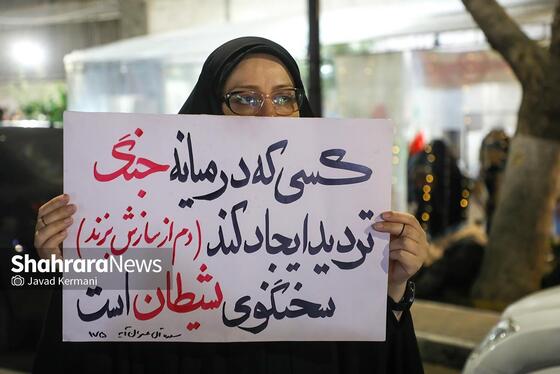 کسی که در میانه جنگ
تردید ایجاد کند (دم از سازش بزند)
سخنگوی شیطان است
سوره آل عمران آیه ۱۷۵
ShahraraNews
Javad Kermani